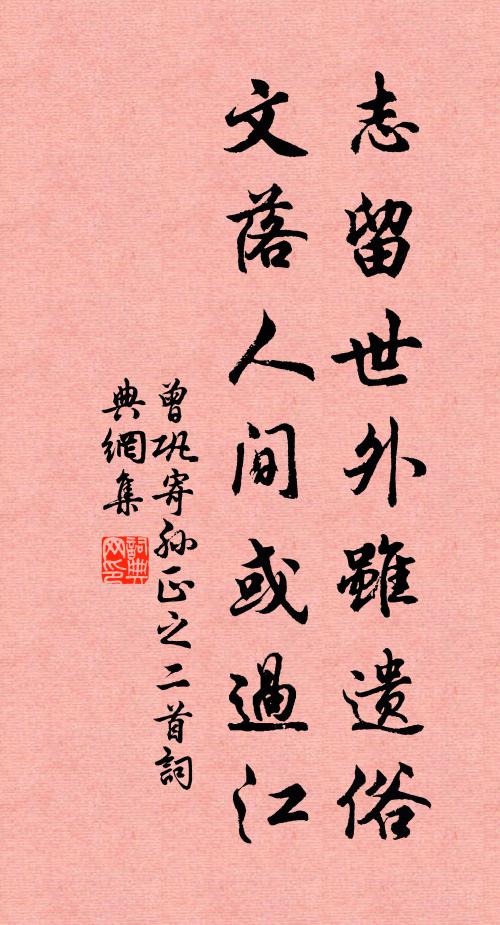 志留世外雖遺俗
文落人間或過江
曾巩寄孙正之二首詞
典網集
詞典
网印